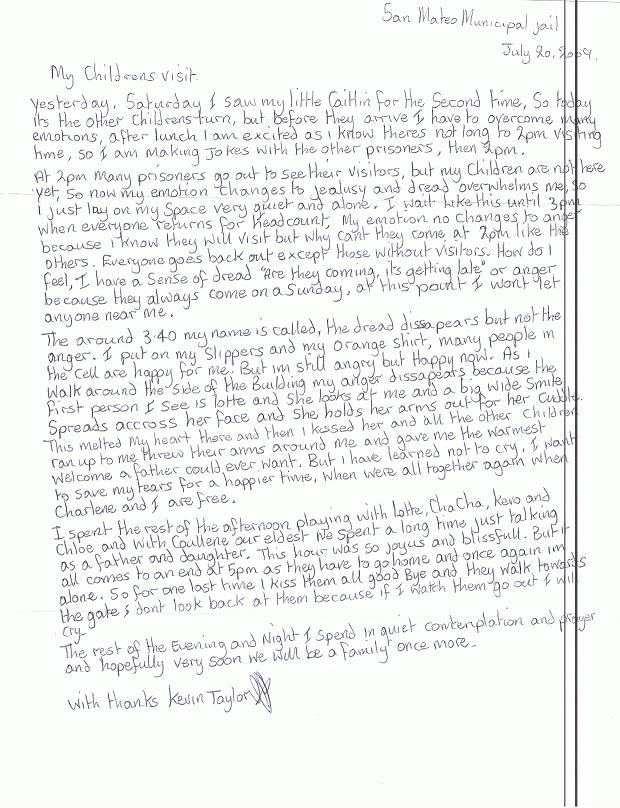 San Mateo Municipal jail
July 20, 2009.
My Childrens visit.
Yesterday, Saturday I saw my little Caitlin for the Second time, So today
its the other Childrens turn, but before they arrive I have to overcome many
emotions, after lunch I am excited as i know theres not long to 2pm visiting
time, so I am making Jokes with the other prisoners, then 2pm.
At 2pm Many prisoners go out to see their visitors, but my Children are not here
yet, So now my emotion changes to jealusy and dread overwhelms me, so
I just lay on my Space very quiet and alone. I wait like this until 3pm
when everyone returns for headcount, My emotion no changes to anger
because i know they will visit but why cant they come at 2pm like the
others. Everyone goes back out except those without visitors. How do I
feel, I have a Sense of dread "Are they coming, its getting late" or anger
because they always come on a Sunday, at this point I wont let
anyone near me.
The around 3:40 my name is called, the dread dissapears but not the
anger. I put on my Slippers and my orange shirt, many people in
the cell are happy for me. But im still angry but Happy now. As i
walk around the side of the Building my anger dissapears because the
first person I see is lotte and She looks at me and a big wide Smile
Spreads accross her face and She holds her arms out for her cuddle.
This melted My heart there and then I kissed her and all the other Children
ran up to me threw their arms around me and gave me the warmest
welcome a father could ever want. But i have learned not to cry, I want
to save my tears for a happier time, when were all together again when
Charlene and I are free.
I spent the rest of the afternoon playing with Lotte, ChaCha, Kevo and
Chloe and with Coullene our eldest we spent a long time just talking
as a father and daughter. This hour was so joyus and blissfull. But it
all comes to an end at 5pm as they have to go home and once again im
alone. So for one last time I kiss them all good Bye and they walk towards
the gate, i dont look back at them because if I watch them go out I will
cry.
The rest of the Evening and Night I spend in quiet contemplation and prayer
and hopefully very soon we will be a family once more.
With thanks Kevin Taylor